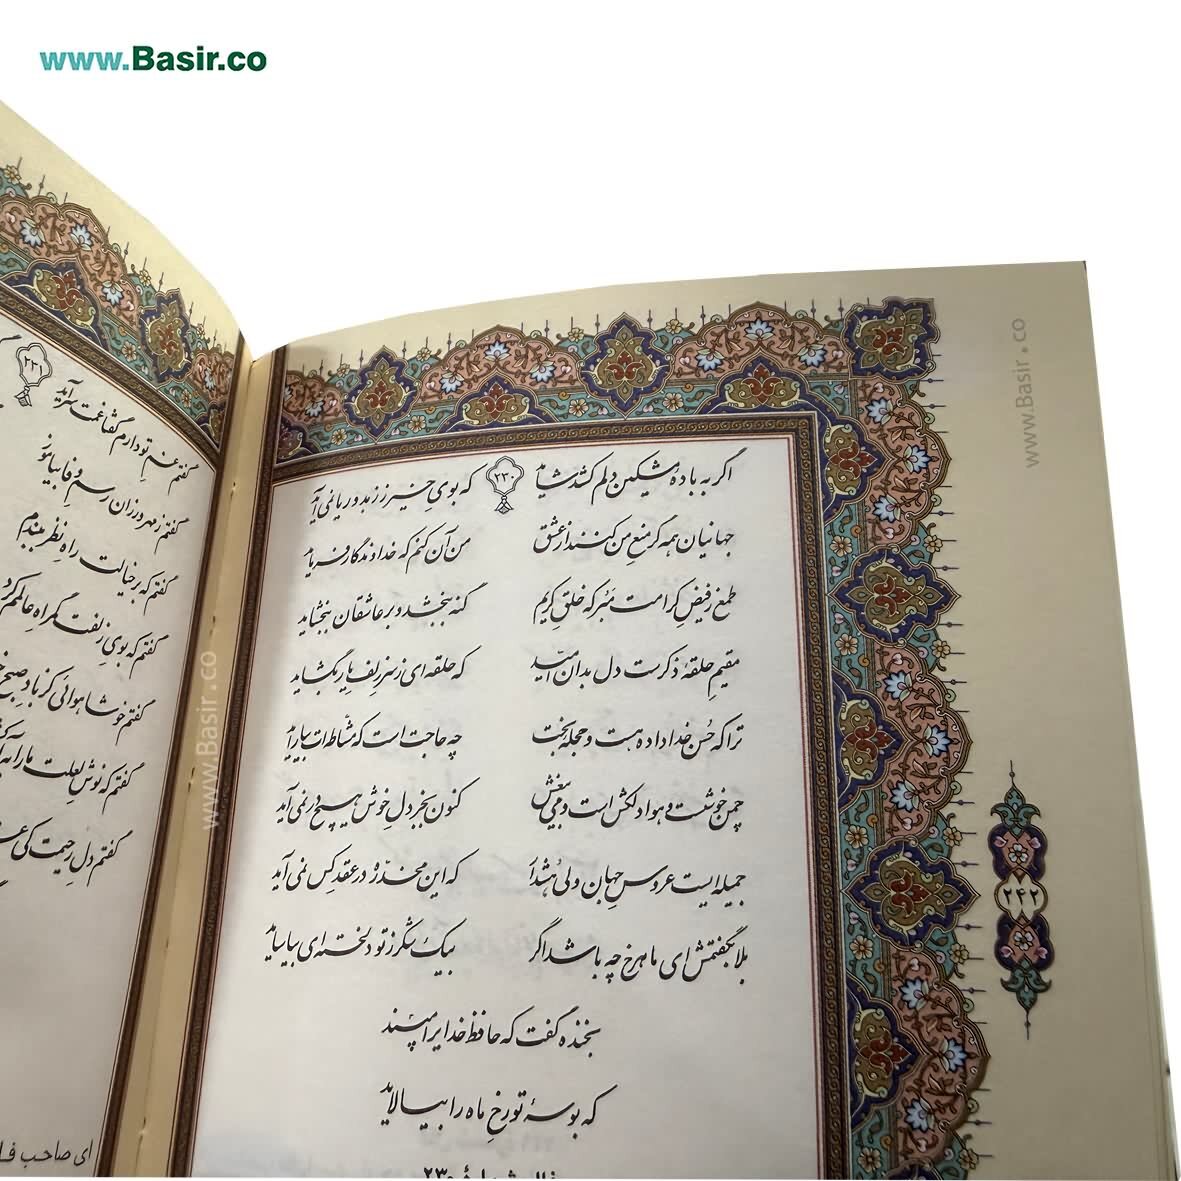 www.Basir.co
۲۳۰
اگر به باده مشکین دلم کشد شاید که بوی خیر ز زهد و ریا نمی آید
جهانیان همه گر منع من کنند از عشق من آن کنم که خداوندگار فرماید
طمع ز فیض کرامت مبر که خلق کریم گنه ببخشد و بر عاشقان ببخشاید
مقیم حلقه ذکرست دل بدان امید که حلقه ای ز سر زلف یار بگشاید
ترا که حُسن خداداده هست و حجله بخت چه حاجت است که مشّاطه ات بیاراید
چمن خوشست و هوا دلکش است و می بیغش کنون بجز دل خوش هیچ در نمی آید
جمیله ایست عروس جهان ولی هُشدار که این مخدّره در عقد کس نمی آید
بلابگفتمش ای ماهرخ چه باشد اگر بیک شکر ز تو دلخسته ای بیاساید
بخنده گفت که حافظ خدایرا مپسند
که بوسهٔ تو رخ ماه را بیالاید
۲۳۰
۲۴۲
www.Basir.co
۲۳۱
گفتم غم تو دارم گفتا غمت سرآید
گفتم ز مهرورزان رسم وفا بیاموز
گفتم که بر خیالت راه نظر ببندم
گفتم که بوی زلفت گمراه عالمم کرد
گفتم خوشا هوائی کز باد صبح
گفتم که نوش لعلت ما را به
گفتم دل رحیمت کی
ای صاحب
www.Basir.co